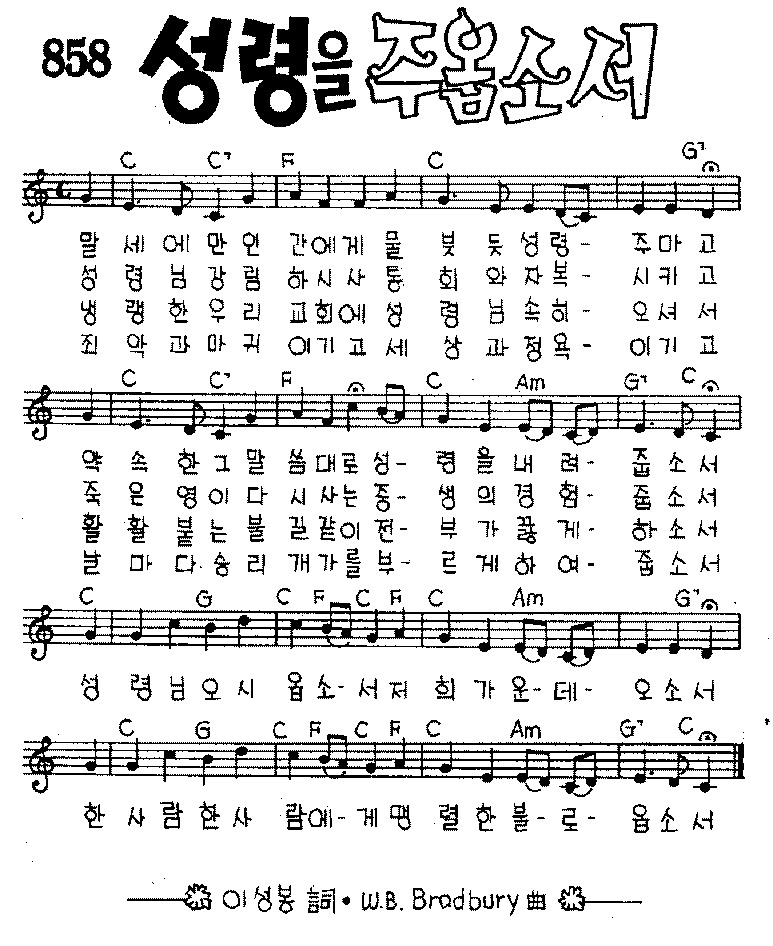 858 성령을 주옵소서
C C7 F C G7
말 세 에 만 인 간에게 물 붓 듯 성령- 주마고
성 령 님 강 림 하시사 통 회 와 자복- 시키고
냉 랭 한 우 리 교회에 성 령 님 속히- 오셔서
죄 악 과 마 귀 이기고 세 상 과 정욕- 이기고
C C7 F C Am G7 C
약 속 한 그 말 씀대로 성- 령 을 내 려- 줍소서
죽 은 영 이 다 시사는 중- 생 의 경 험- 줍소서
활 활 붙 는 불 길같이 전- 부 가 끓 게- 하소서
날 마 다 승 리 개가를 부- 르 게 하 여- 줍소서
C G C F C F C Am G7
성 령 님 오 시 옵소- 서 저 희 가 운- 데- 오소서
C G C F C F C Am G7 C
한 사 람 한 사 람에- 게 맹 렬 한 불- 로- 옵소서
이성봉 詞 • W.B. Bradbury 曲